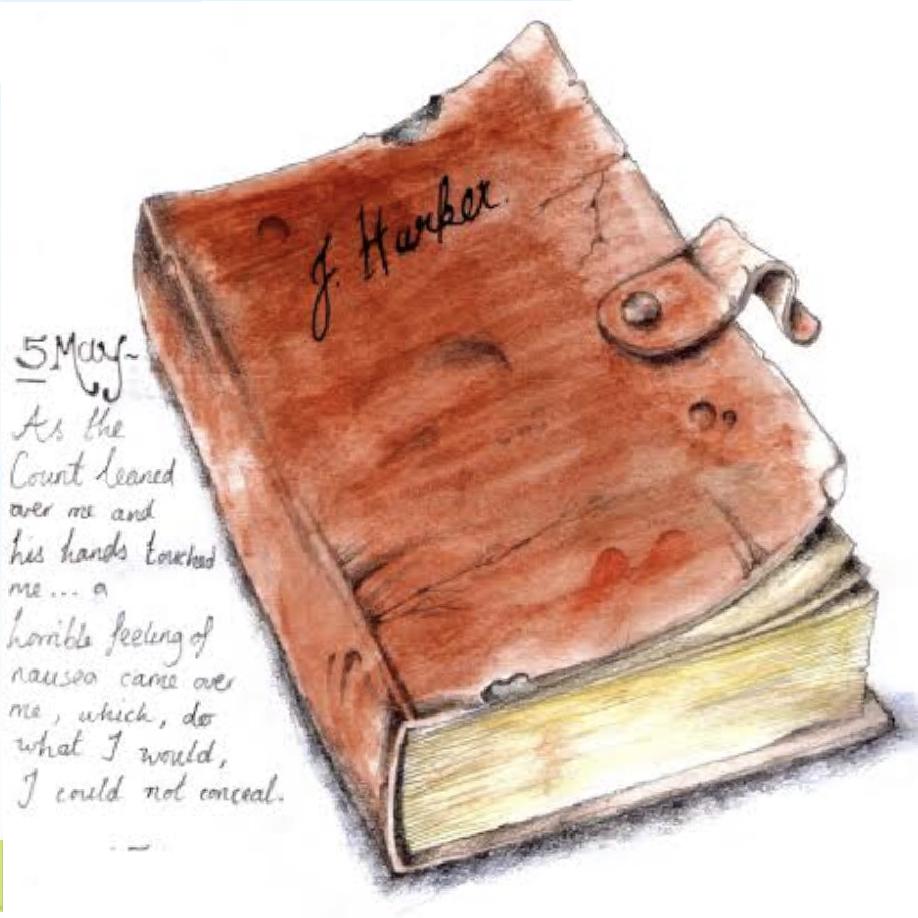 J. Harker.
5 May~
As the
Count leaned
over me and
his hands touched
me... a
horrible feeling of
nausea came over
me, which, do
what I would,
I could not conceal.